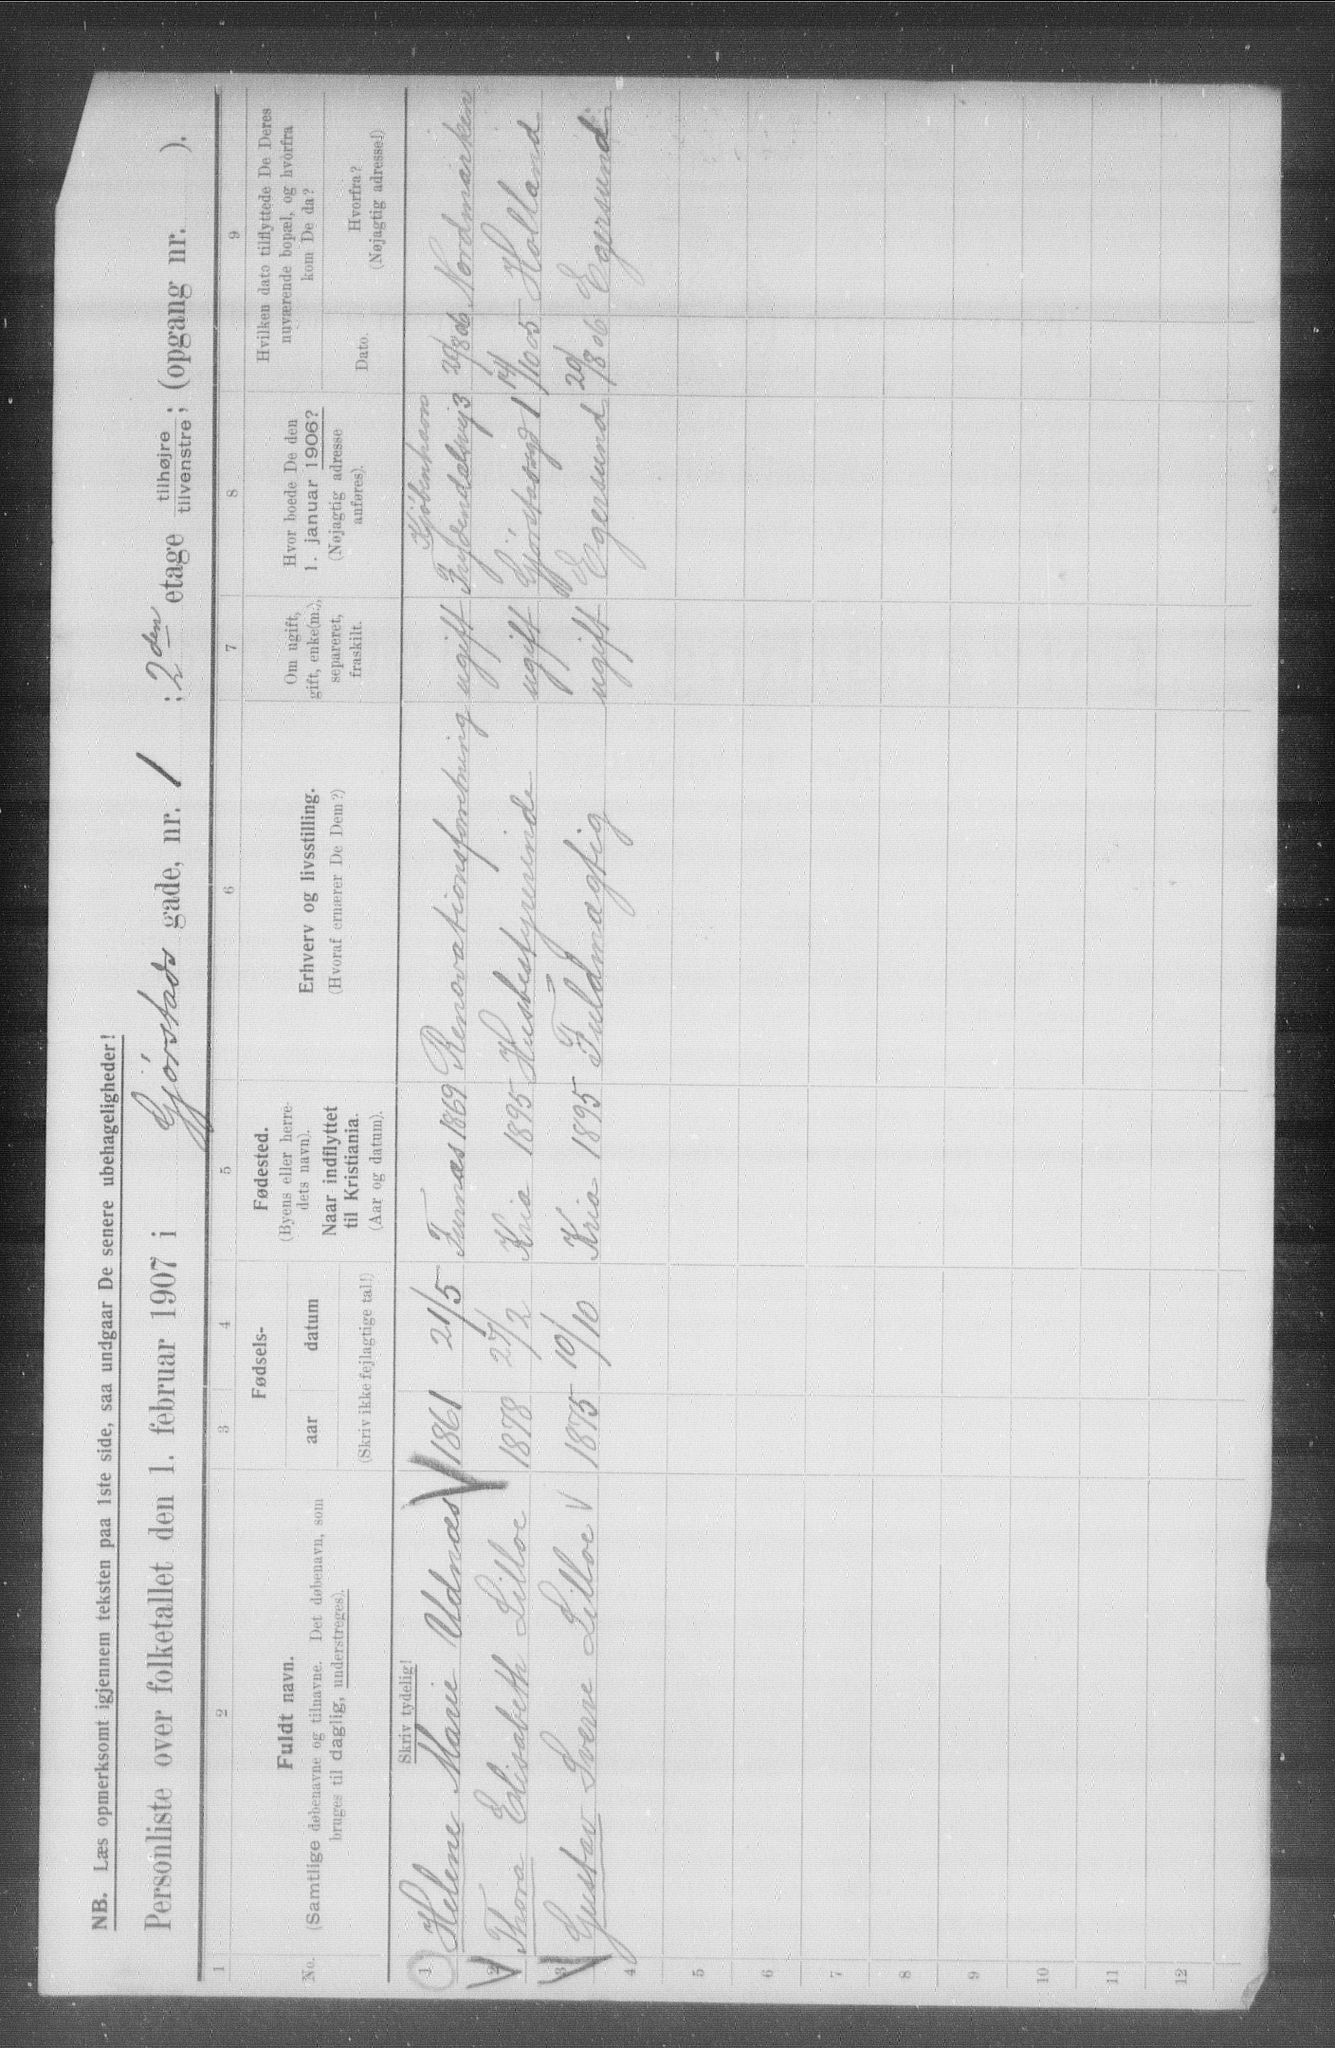 NB. Læs opmerksomt igjennem teksten paa 1ste side, saa undgaar De senere ubehageligheder!
Personliste over folketallet den 1. februar 1907 i Gjörstads gade, nr. 1 ; 2den etage tilhøjre tilvenstre; (opgang nr. ).
1 2 3 4 5 6 7 8 9
No.
Fuldt navn.
(Samtlige døbenavne og tilnavne. Det døbenavn, som
bruges til daglig, understreges).
Fødsels-
aar datum
(Skriv ikke fejlagtige tal!)
Fødested.
(Byens eller herre-
dets navn).
Naar indflyttet
til Kristiania.
(Aar og datum).
Erhverv og livsstilling.
(Hvoraf ernærer De Dem?)
Om ugift,
gift, enke(m.),
separeret,
fraskilt.
Hvor boede De den
1. januar 1906?
(Nøjagtig adresse
anføres).
Hvilken dato tilflyttede De Deres
nuværende bopæl, og hvorfra
kom De da?
Dato.
Hvorfra?
(Nøjagtig adresse!)
Skriv tydelig!
Kjöbenhavn
1 Helene Marie Udnæs 1861 21/5 Furnæs 1869 Renovationsforretning ugift 3 29/8 06 Nordmarken
2 Thora Elisabeth Lilloe 1878 27/2 Kria 1895 Husbestyrerinde ugift 1 14/10 05 Holland
3 Gustav Sverre Lilloe 1875 10/10 Kria 1895 Fuldmægtig ugift Egersund 29/8 06 Egersund
4
5
6
7
8
9
10
11
12